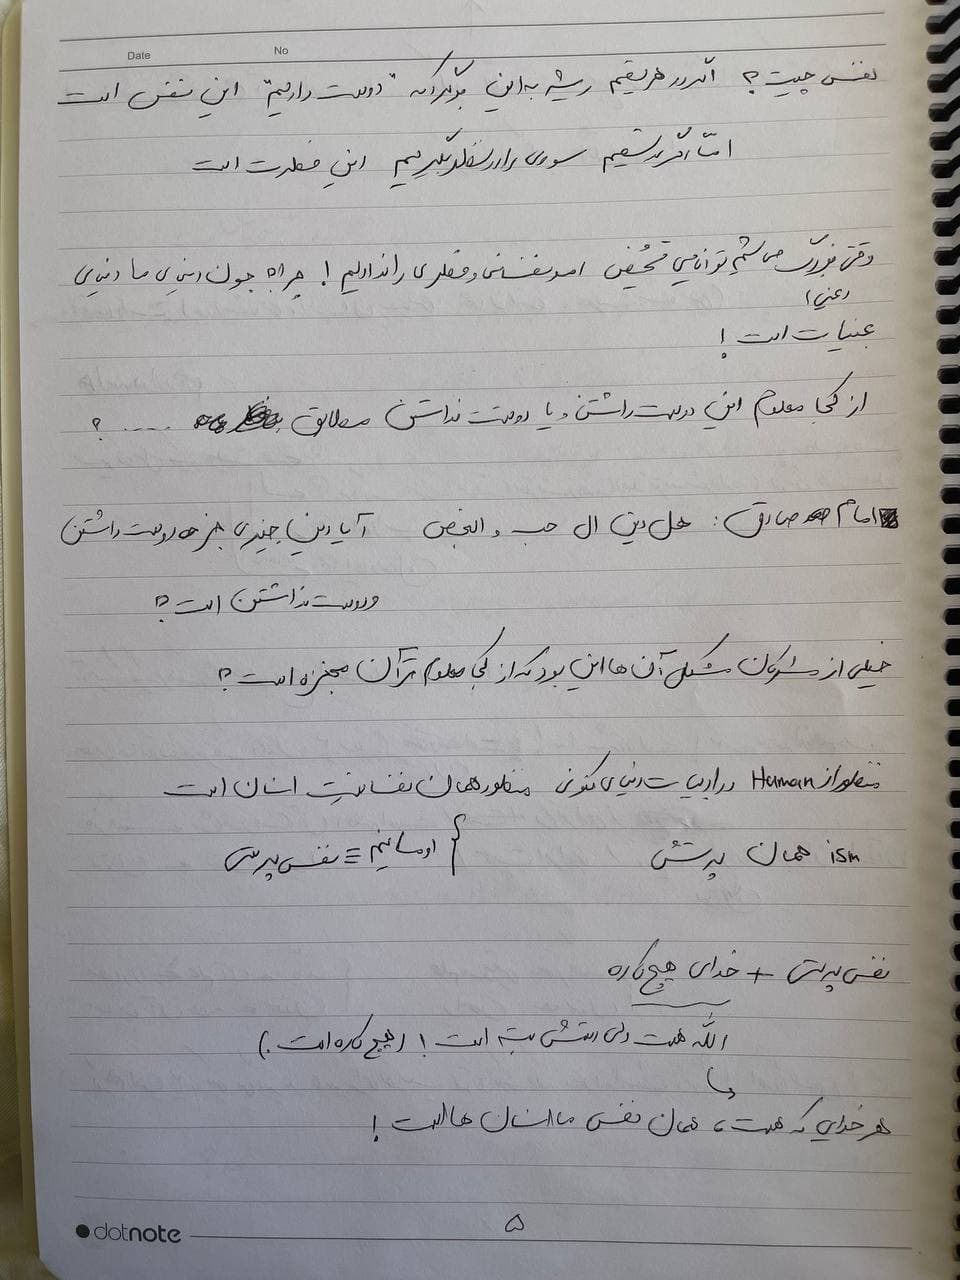 Date No
نفس چیست؟ اگر در هر بقیم ریشه به این برگردانه "دوست داریم" این نفس است
امّا اگر بد سقیم سودی را در نظر بگیریم این فطرت است
وقتی بزرگ می‌شیم توانایی تمحیض امور نفسانی و فطری را نداریم! چرا؟ چون دنیای ما دنیای
(غنی)
غنیات است!
از کجا معلوم این دوست داشتن و یا دوست نداشتن مطابق ..... ؟
امام صادق: هل دین ال حب و البغض آیا دین چیزی جز دوست داشتن
و دوست نداشتن است؟
خیلی از مشرکان مشکل آن ها این بود که از کجا معلوم قرآن معجزه است؟
منظور از Human در ادبیات دنیای کنونی منظور همان نفسانیت انسان است
ism همان پرستش } اومانیسم ≡ نفس پرستی
نفس پرستی + خدای هیچ کاره
الله هست ولی دستش بسته است! (هیچ کاره است.)
هر خدایی که هست، همان نفس ما انسان ها است!
dotnote ۵